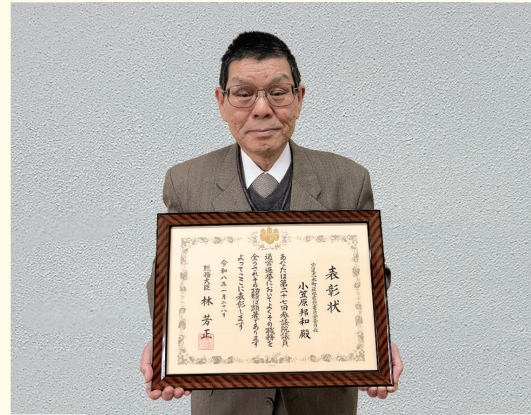 表彰状
小笠原邦和 殿
あなたは第二十七回参議院議員
通常選挙においてよくその職務を
全うされその功績は顕著であります
よってここに表彰します
令和八年一月二八日
総務大臣 林 芳正